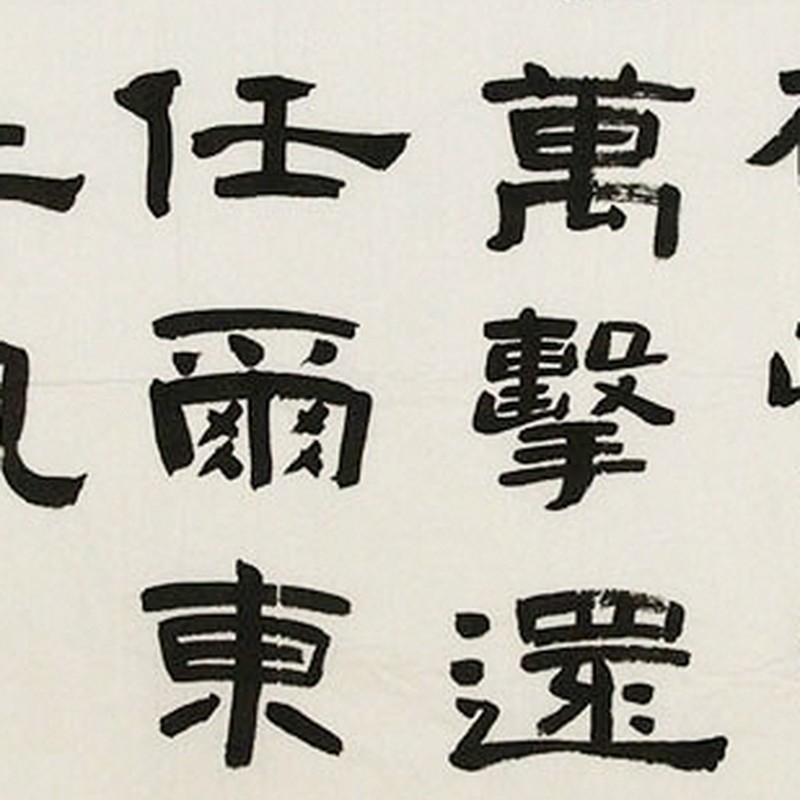 萬擊還
任爾東